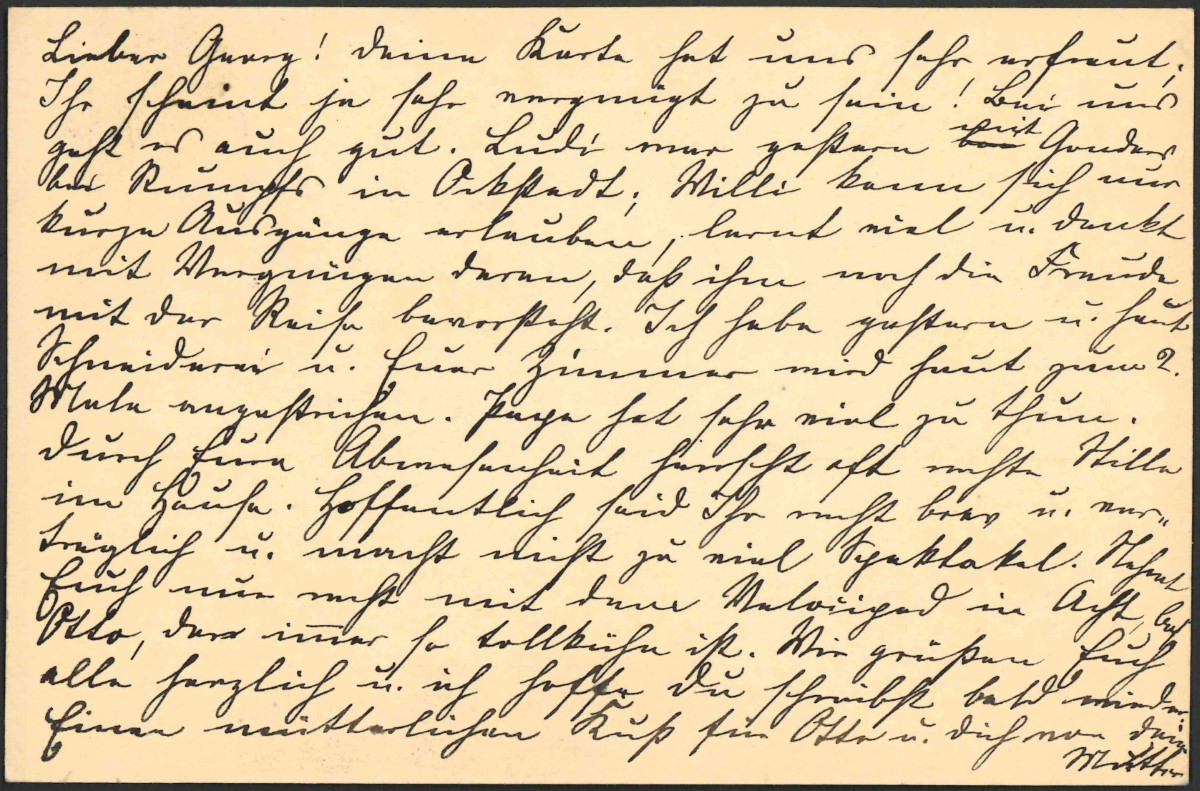 Lieber Georg! Deine Karte hat uns sehr erfreut,
Ihr scheint ja sehr vergnügt zu sein! Bei uns
geht es auch gut. Ludi war gestern mit Gonders
bei Rumpfs in Ockstadt; Willi kann sich nur
kurze Ausgänge erlauben, lernt viel u. denkt
mit Vergnügen daran, daß ihm noch die Freude
mit der Reise bevorsteht. Ich habe gestern u. heut
Schneiderei u. Euer Zimmer wird heut zum 2.
Male angestrichen. Papa hat sehr viel zu thun.
Durch Eure Abwesenheit herrscht oft rechte Stille
im Hause. Hoffentlich seid Ihr recht brav u. ver-
träglich u. macht nicht zu viel Spektakel. Nehmt
Euch nur recht mit dem Velociped in Acht, bes.
Otto, der immer so tollkühn ist. Wir grüßen Euch
alle herzlich u. ich hoffe Du schreibst bald wieder.
Einen mütterlichen Kuß für Otto u. Dich von Dein
Mutter